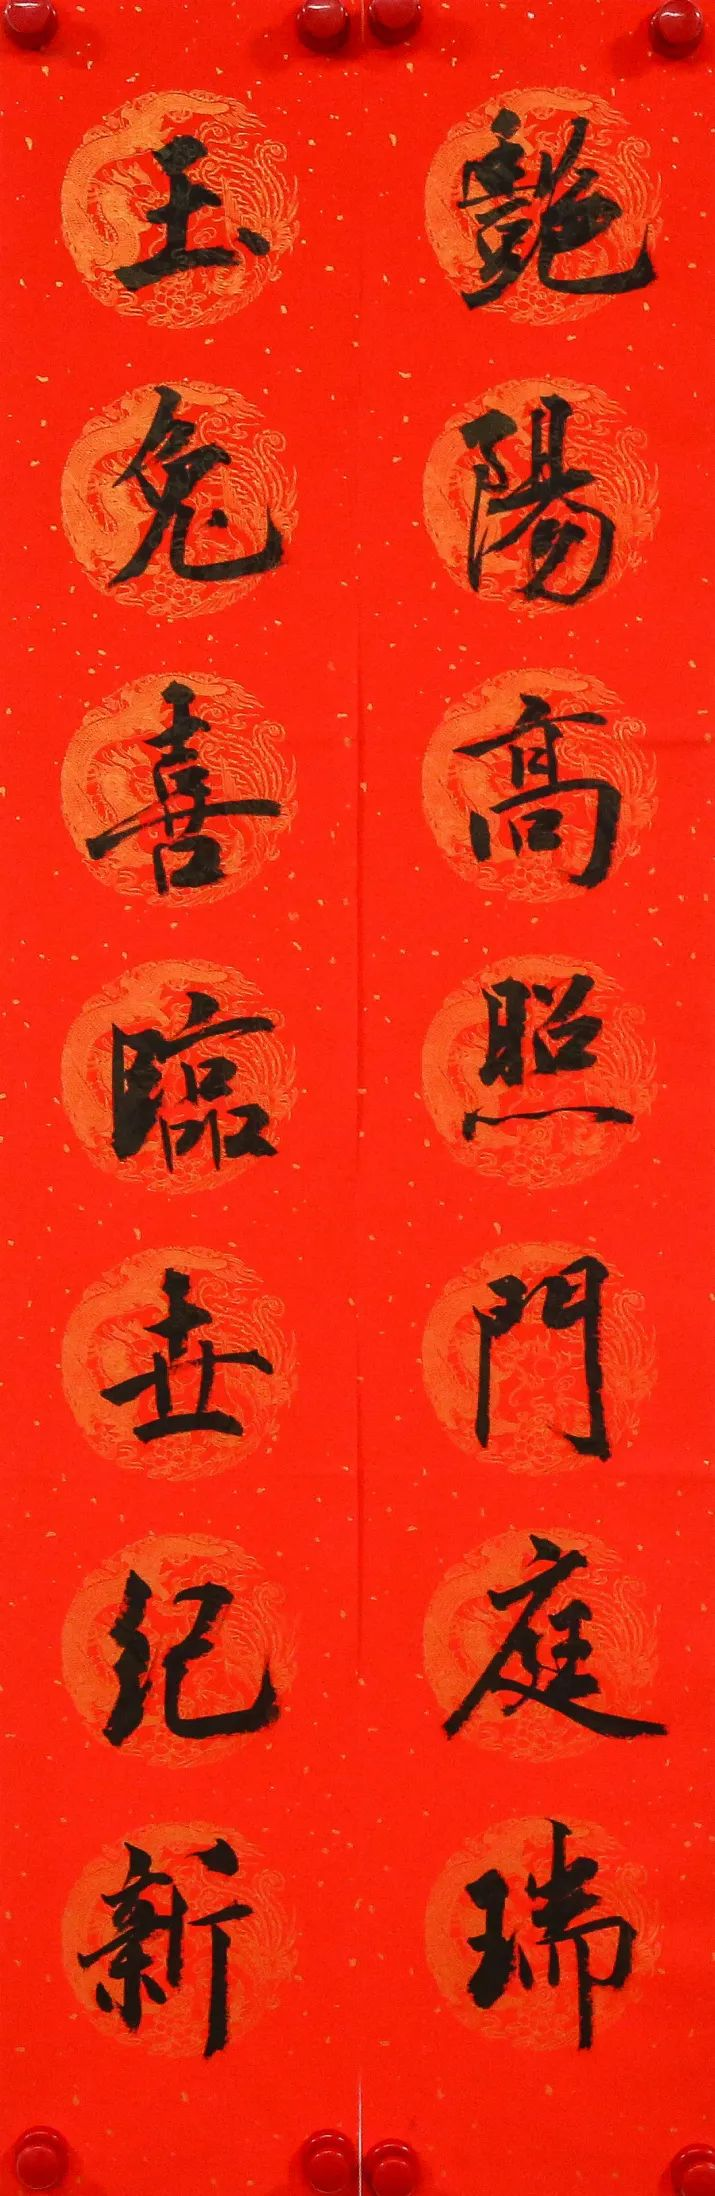 艶陽高照門庭瑞
玉兔喜臨世纪新